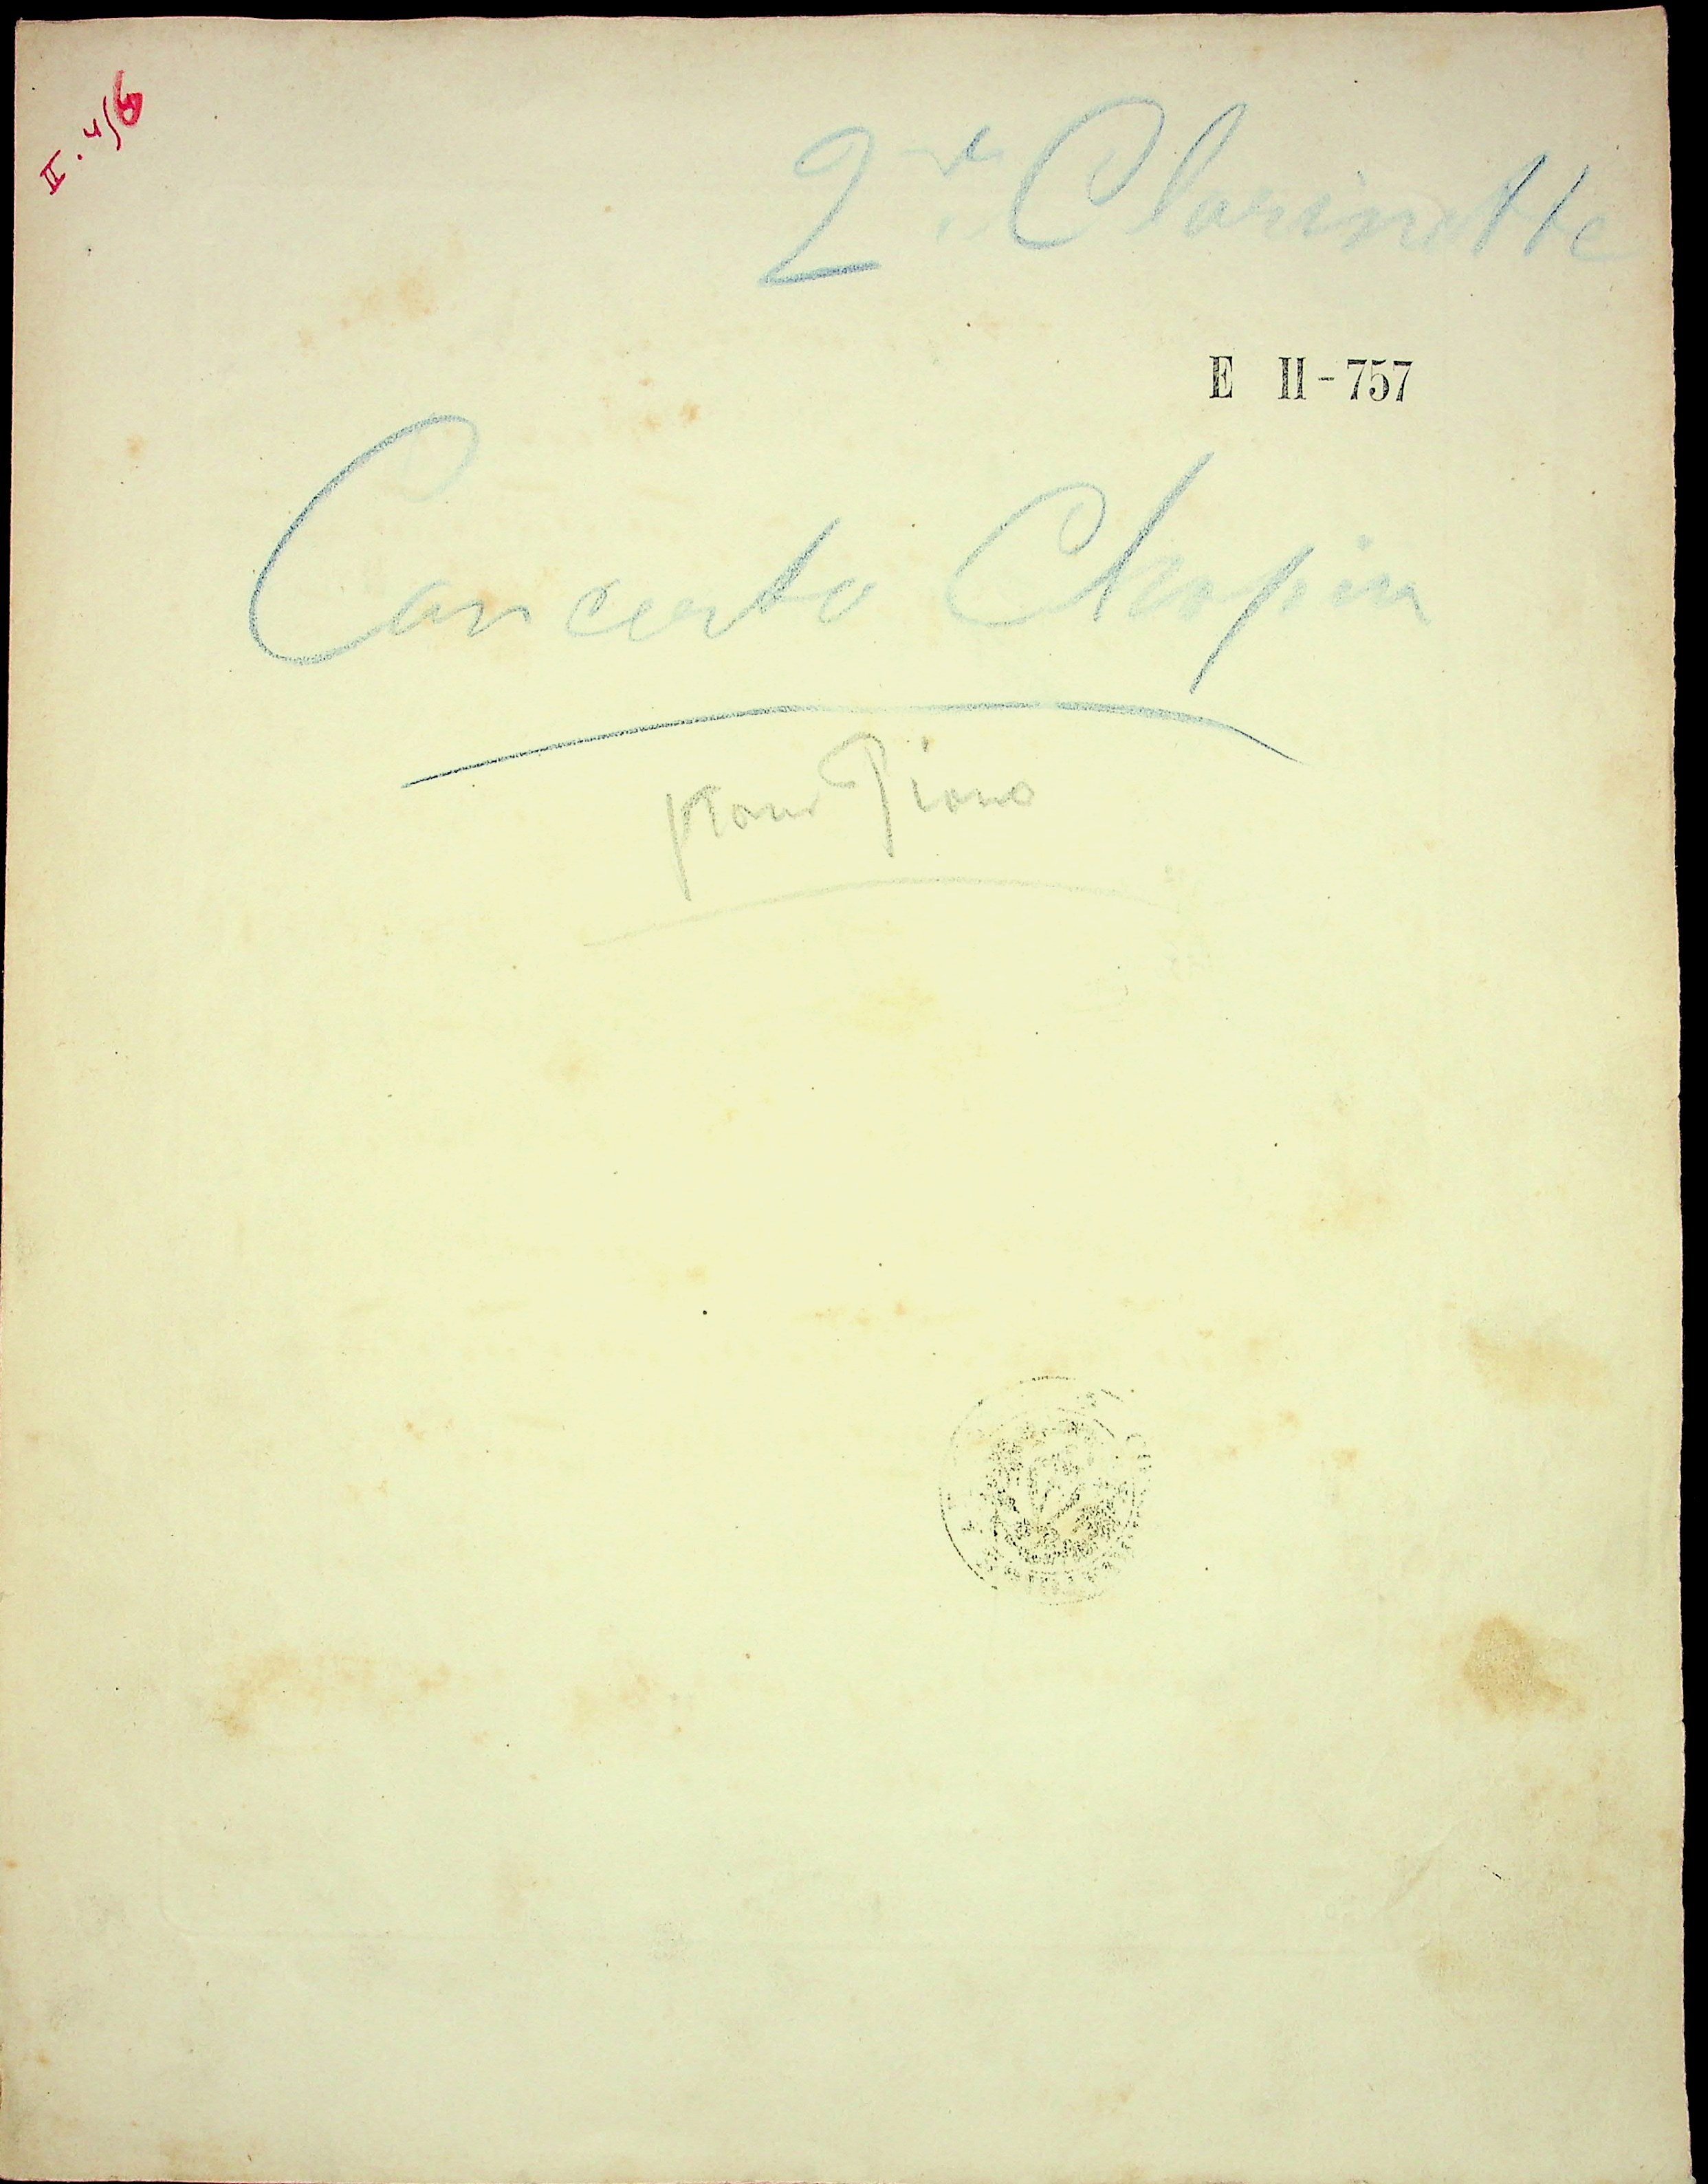 II. 4/6
2de Clarinette
E II-757
Concerto Chopin
pour Piano